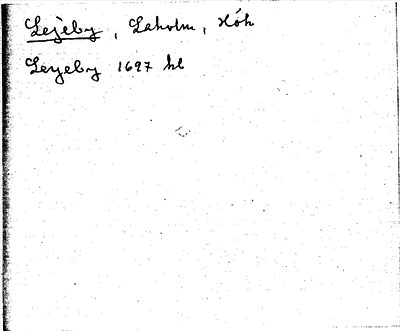 Lejeby, Laholm, Höh
Leyeby 1697 hl